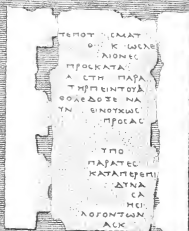 ΤΕΠΟΤ ΣΜΑΤ
Ο Κ ΩΣΑΕ
ΛΙΟΝΕΣ
ΠΡΟΣΚΑΤΑ
Α ΣΤΗ ΠΑΡΑ
ΤΗΡΠΕΙΝΤΟΥΔ
ΝΑ
ΥΝ ΕΙΝΟΥΧΩΣ
ΠΡΟΣΑΣ
ΥΠΟ
ΠΑΡΑΤΕΣ
ΚΑΤΑΠΕΡΕΠΙ
ΔΥΝΑ
ΣΑ
ΗΣΙ
ΛΟΓΟΝΤΩΝ
ΑΣΚ